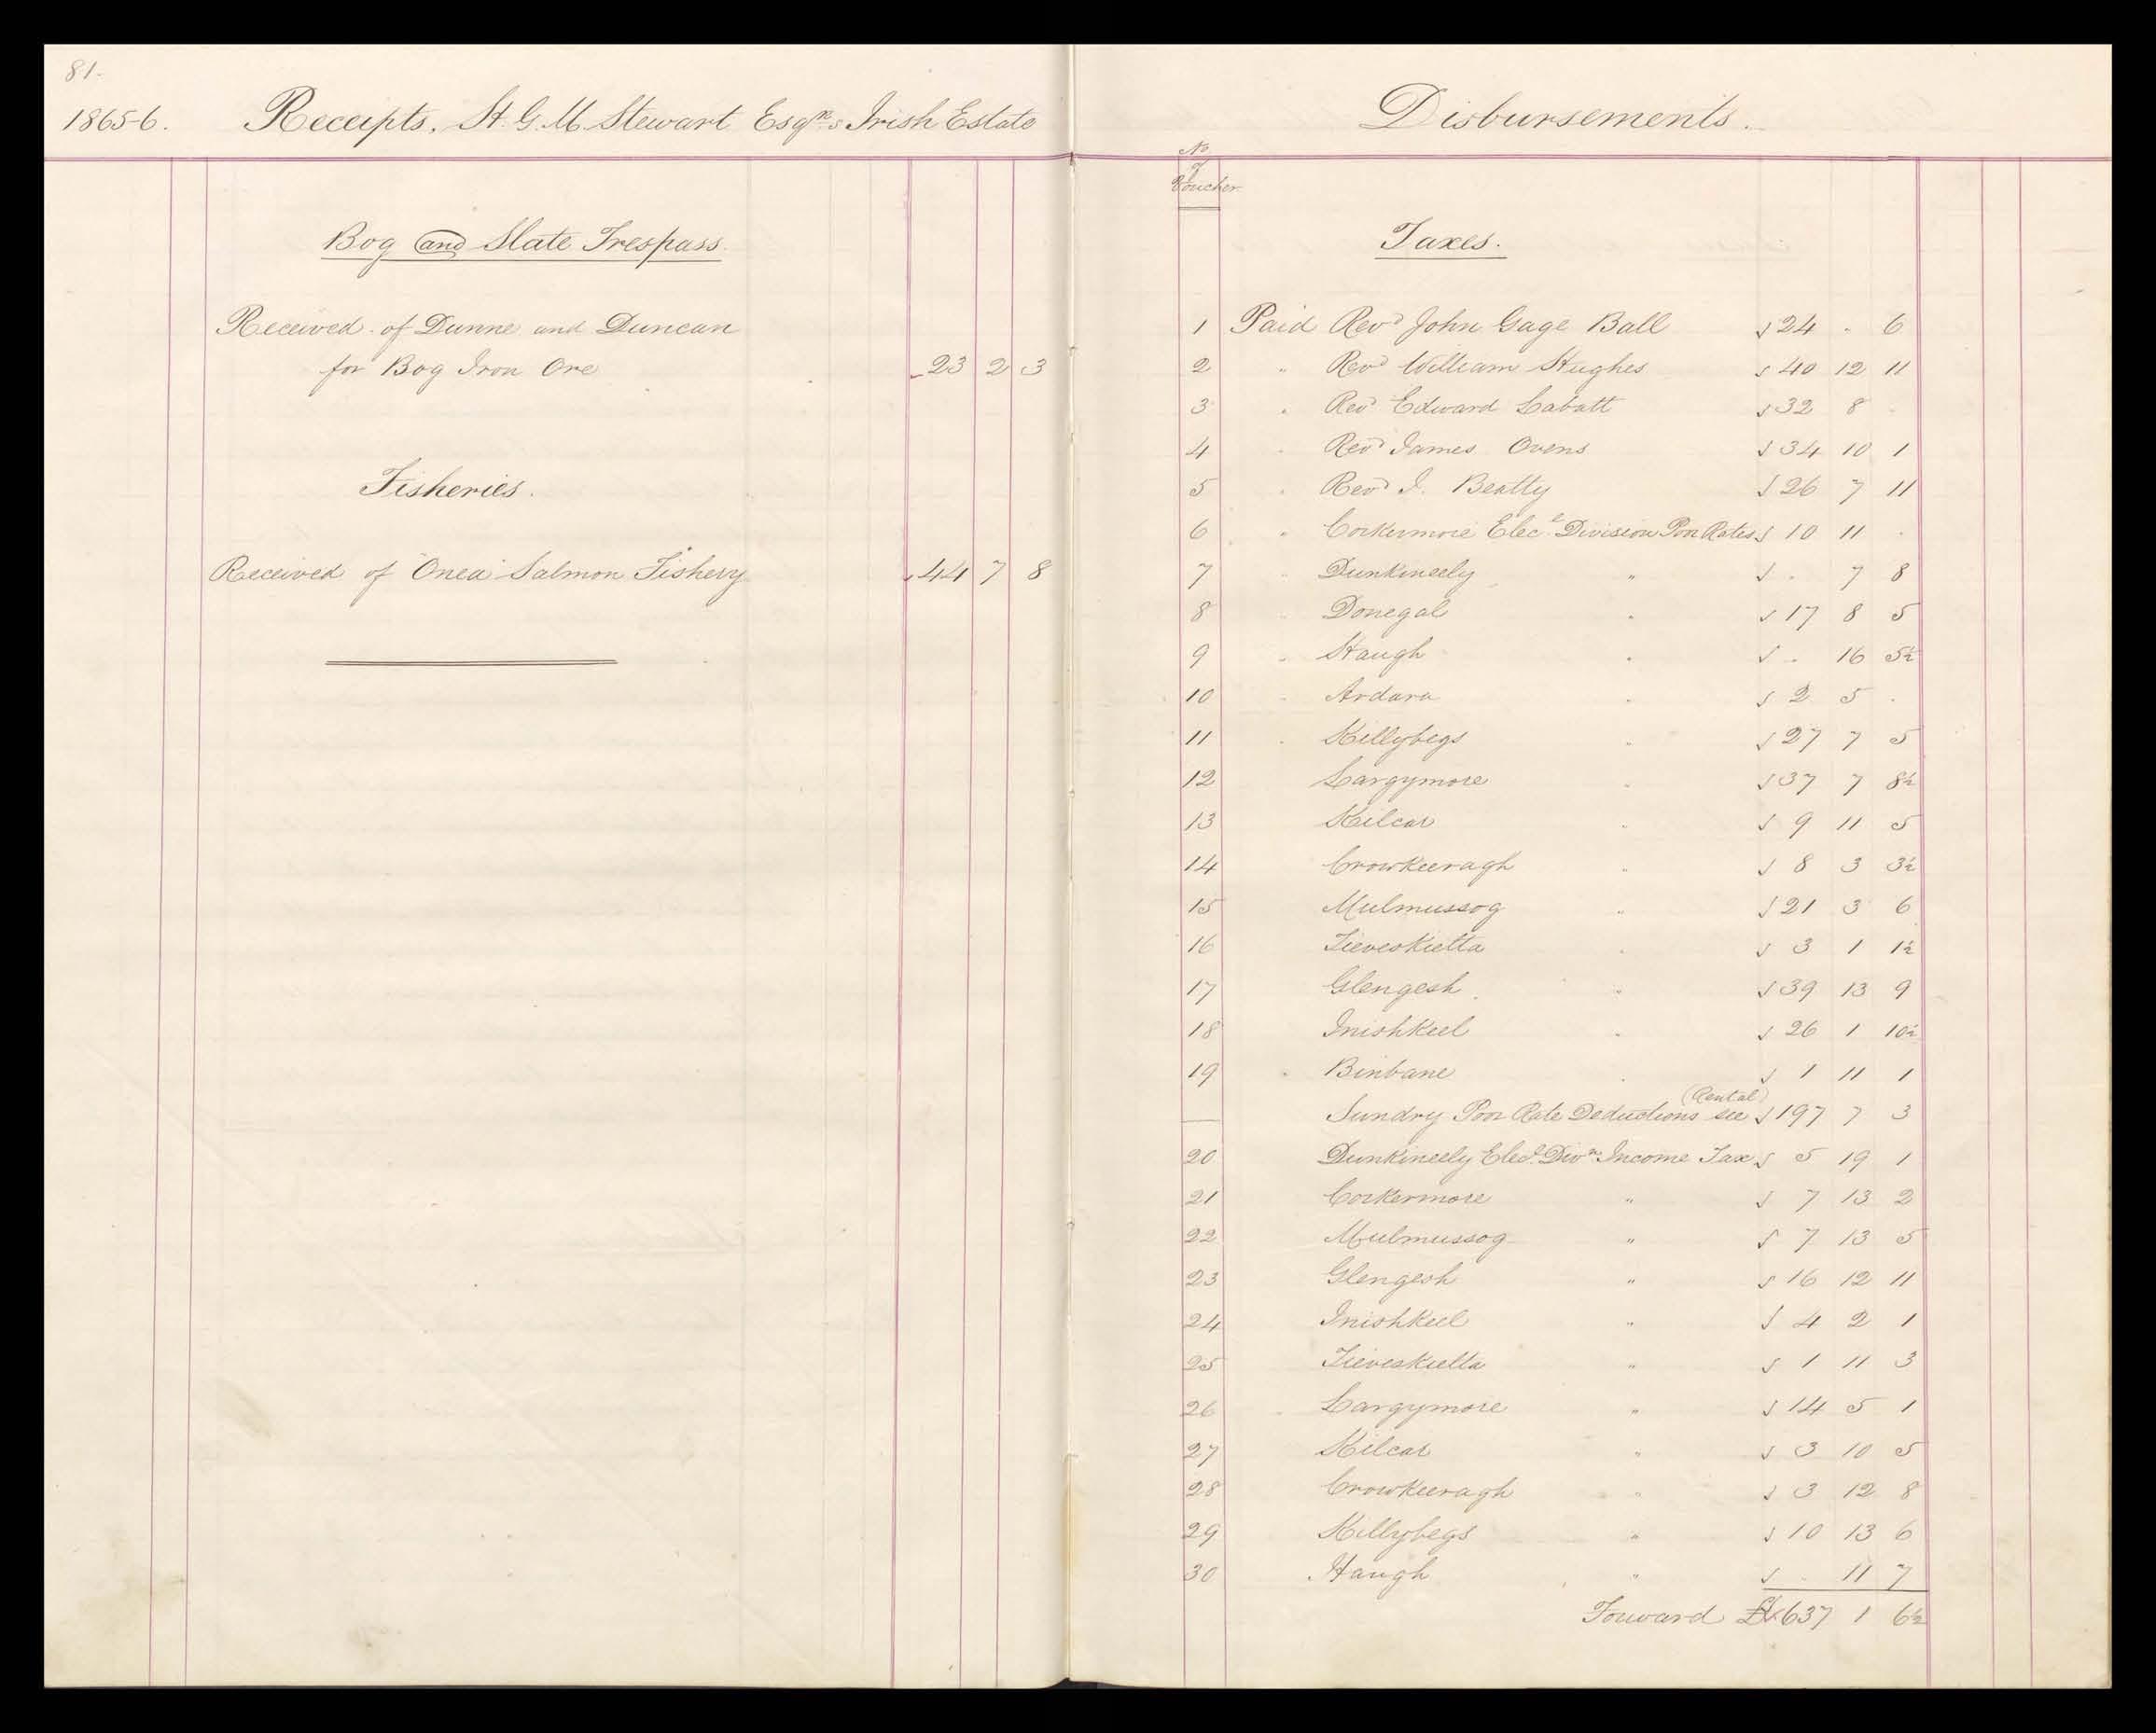 81.
1865-6. Receipts. H. G. M. Stewart Esqre.s Irish Estate
Bog and Slate Trespass.
Received of Dunne and Duncan
for Bog Iron Ore 23 2 3
Fisheries.
Received of "Onea" Salmon Fishery 44 7 8
Disbursements.
No
of
Voucher
Taxes.
1 Paid Revd John Gage Ball 24 " 6
2 " Revd William Hughes 40 12 11
3 " Revd Edward Labatt 32 8 "
4 " Revd James Ovens 34 10 1
5 " Revd J. Beatty 26 7 11
6 " Corkermore Elecl Division Poor Rates 10 11 "
7 " Dunkineely " " 7 8
8 " Donegal " 17 8 5
9 " Haugh " " 16 5½
10 " Ardara " 2 5 "
11 " Killybegs " 27 7 5
12 Largymore " 37 7 8½
13 Kilcar " 9 11 5
14 Crowkeeragh " 8 3 3½
15 Mulmussog " 21 3 6
16 Lieveskietta " 3 1 1½
17 Glengesh " 39 13 9
18 Inishkeel " 26 1 10½
19 " Binbane " 1 11 1
— Sundry Poor Rate Deductions see (Rental) 197 7 3
20 Dunkineely Elecl Divn Income Tax 5 19 1
21 Corkermore " 7 13 2
22 Mulmussog " 7 13 5
23 Glengesh " 16 12 11
24 Inishkeel " 4 2 1
25 Lieveskietta " 1 11 3
26 Largymore " 14 5 1
27 Kilcar " 3 10 5
28 Crowkeeragh " 3 12 8
29 Killybegs " 10 13 6
30 Haugh " " 11 7
Forward £637 1 6½